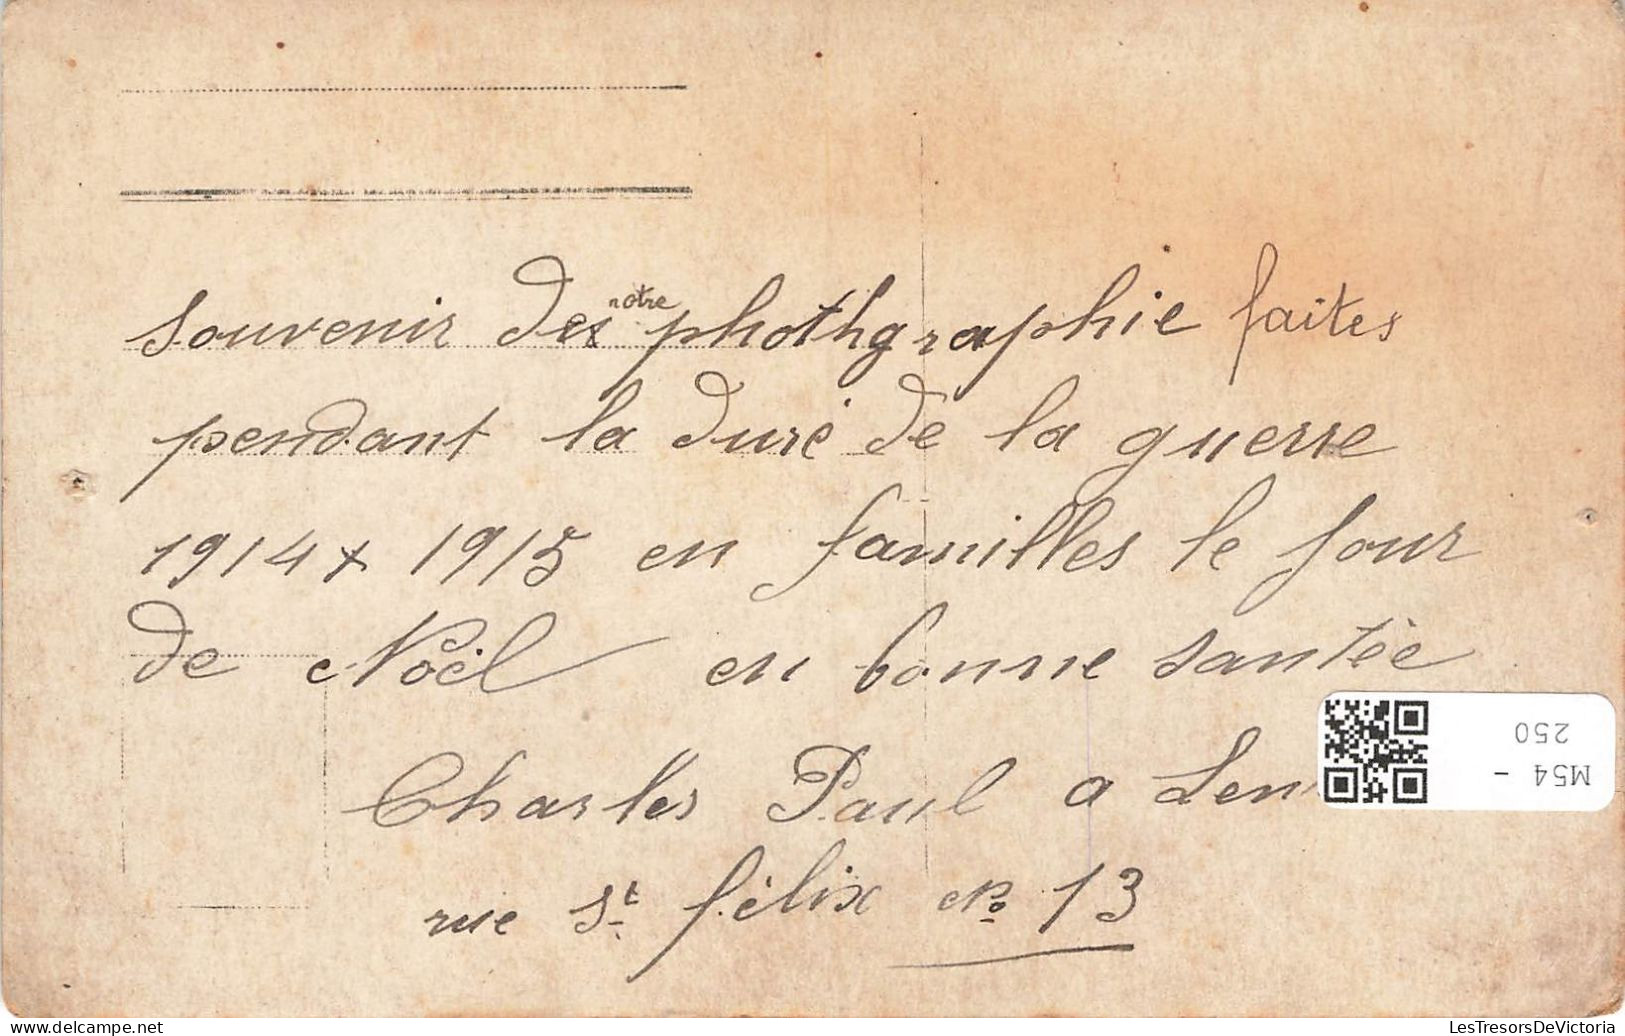 souvenir de notre phothgraphie faites
pendant la duré de la guerre
1914 x 1915 en familles le jour
de Nöel en bonne santée
Charles Paul a
rue St félix No 13
M54 -
250
LesTresorsDeVictoria
www.delcampe.net